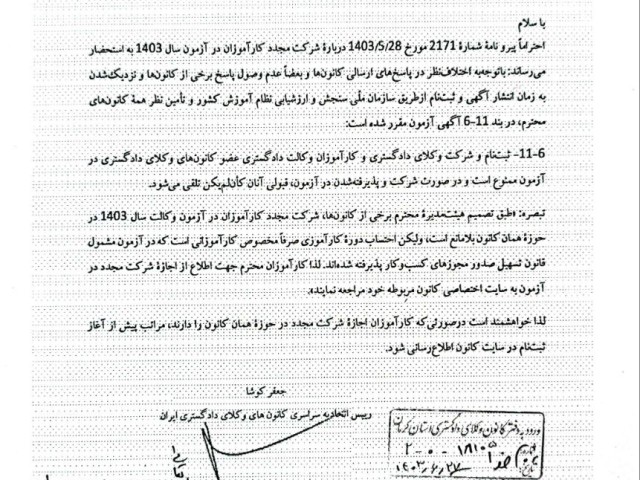 با سلام
احتراماً پیرو نامۀ شمارۀ 2171 مورخ 1403/5/28 دربارۀ شرکت مجدد کارآموزان در آزمون سال 1403 به استحضار
می‌رساند: باتوجه‌به اختلاف‌نظر در پاسخ‌های ارسالی کانون‌ها و بعضاً عدم وصول پاسخ برخی از کانون‌ها و نزدیک‌شدن
به زمان انتشار آگهی و ثبت‌نام ازطریق سازمان ملّی سنجش و ارزشیابی نظام آموزش کشور و تأمین نظر همۀ کانون‌های
محترم، در بند 11-6 آگهی آزمون مقرر شده است:
11-6- ثبت‌نام و شرکت وکلای دادگستری و کارآموزان وکالت دادگستری عضو کانون‌های وکلای دادگستری در
آزمون ممنوع است و در صورت شرکت و پذیرفته‌شدن در آزمون، قبولی آنان کأن‌لم‌یکن تلقی می‌شود.
تبصره: «طبق تصمیم هیئت‌مدیرۀ محترم برخی از کانون‌ها، شرکت مجدد کارآموزان در آزمون وکالت سال 1403 در
حوزۀ همان کانون بلامانع است، ولیکن احتساب دورۀ کارآموزی صرفاً مخصوص کارآموزانی است که در آزمون مشمول
قانون تسهیل صدور مجوزهای کسب‌وکار پذیرفته شده‌اند. لذا کارآموزان محترم جهت اطلاع از اجازۀ شرکت مجدد در
آزمون به سایت اختصاصی کانون مربوطه خود مراجعه نمایند».
لذا خواهشمند است درصورتی‌که کارآموزان اجازۀ شرکت مجدد در حوزۀ همان کانون را دارند، مراتب پیش از آغاز
ثبت‌نام در سایت کانون اطلاع‌رسانی شود.
جعفر کوشا
رییس اتحادیه سراسری کانون های وکلای دادگستری ایران
ورود به دفتر کانون وکلای دادگستری استان کرمان